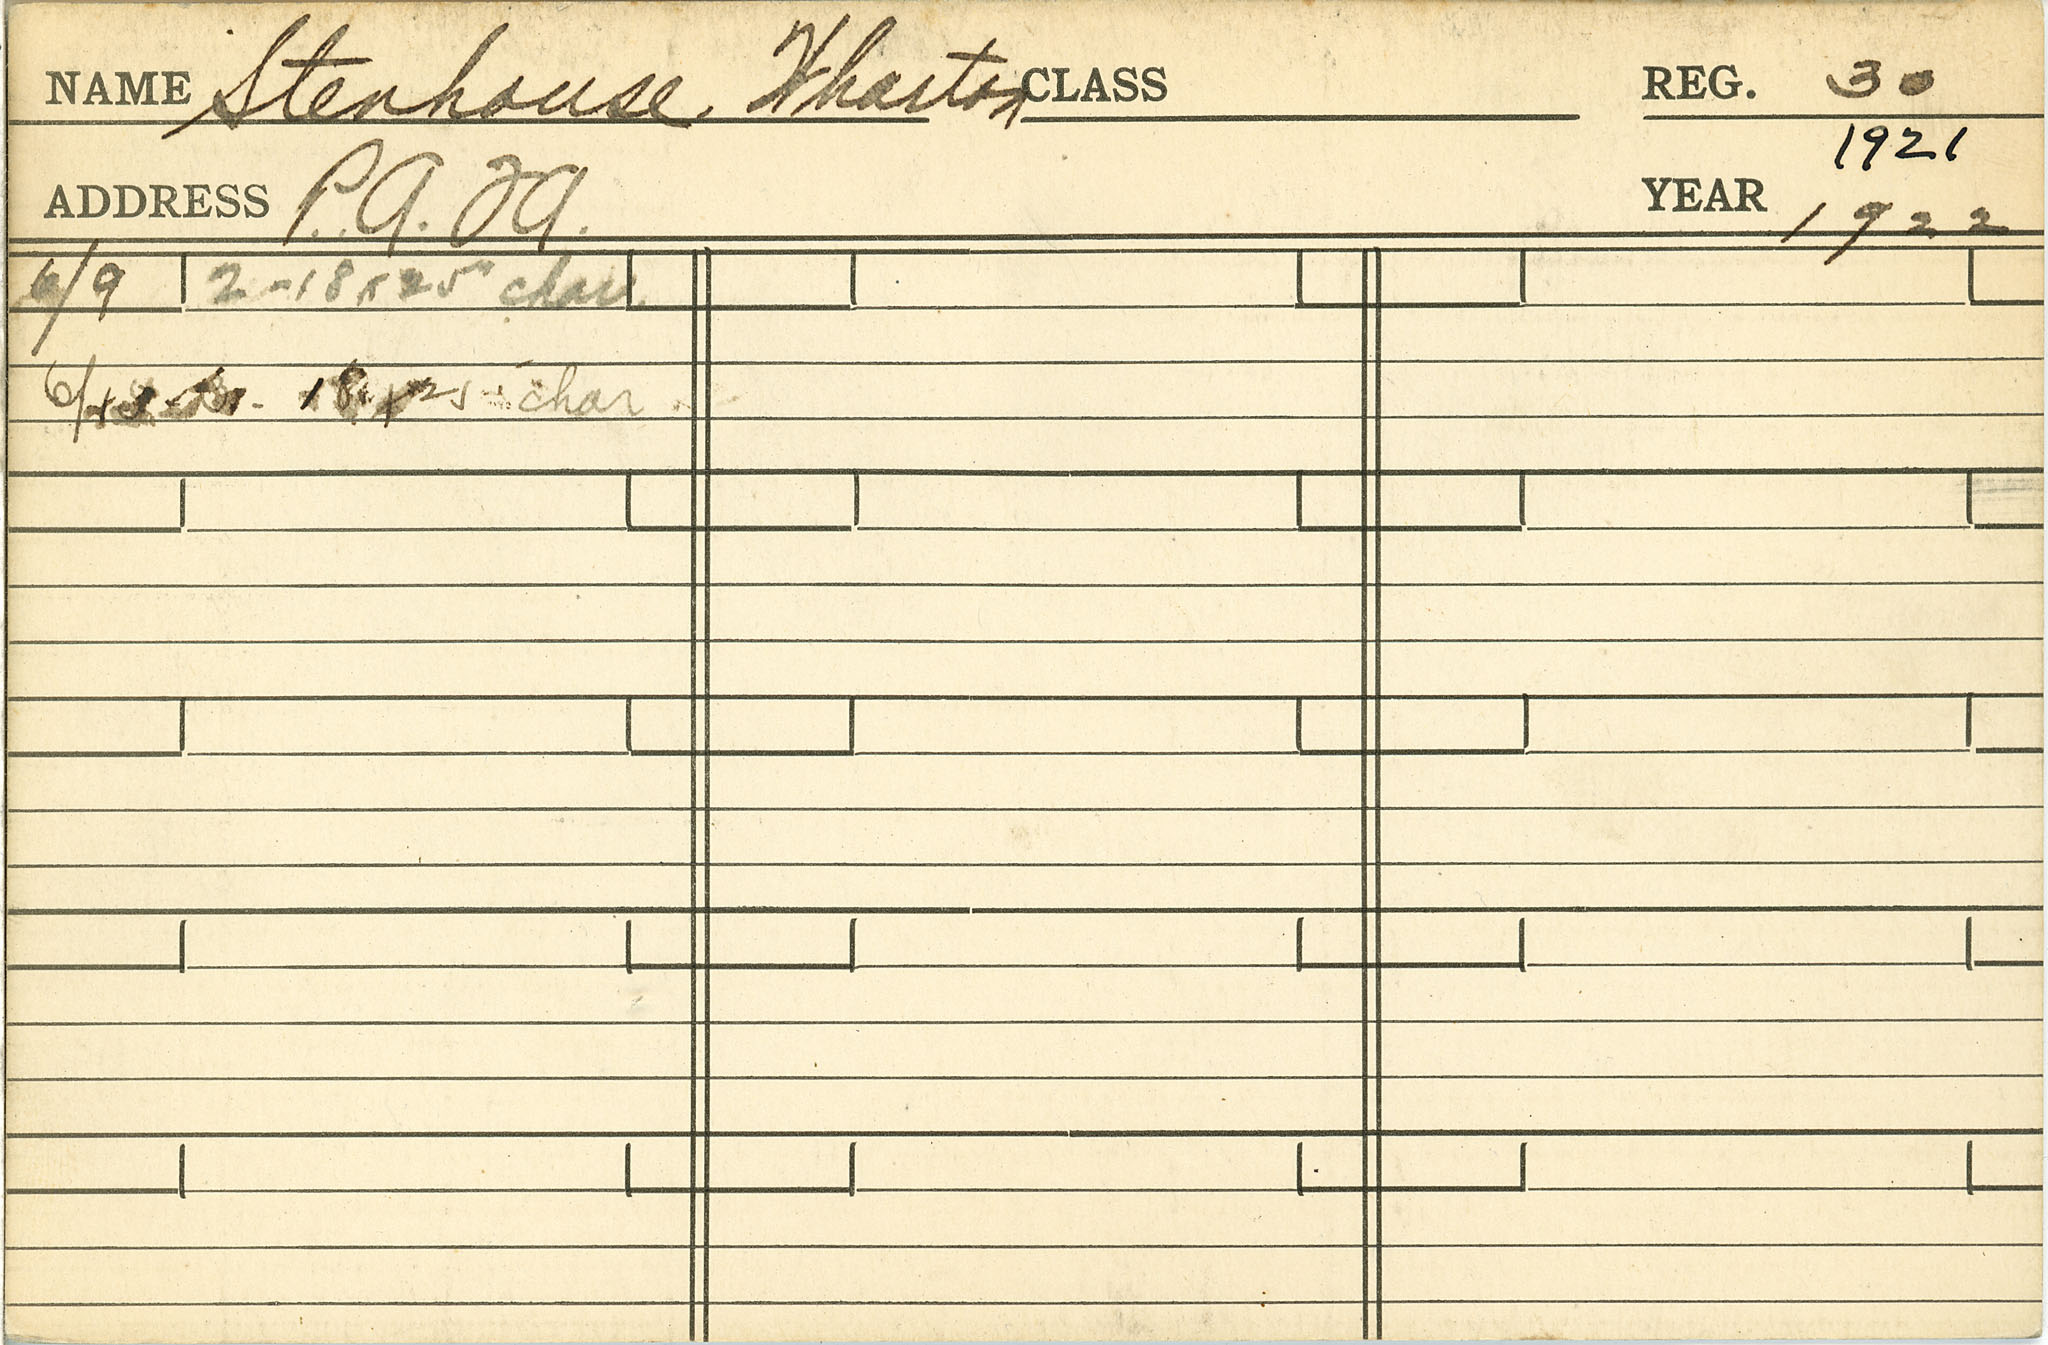 NAME Stenhouse, Wharton CLASS REG. 30
1921
ADDRESS P.A.F.A. YEAR 1922
6/9 2-18x25" char.
6/13 18x25 char.